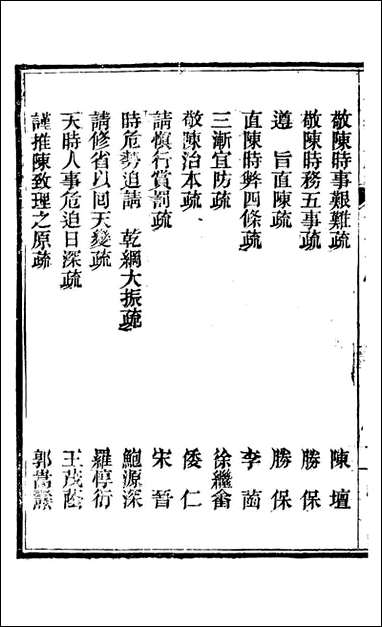 敬陳時事艱難疏　陳壇
敬陳時務五事疏　勝保
遵　旨直陳疏　勝保
直陳時弊四條疏　李菡
三漸宜防疏　徐繼畬
敬陳治本疏　倭仁
請慎行賞罰疏　宋晉
時危勢迫請　乾綱大振疏　鮑源深
請修省以回天變疏　羅惇衍
天時人事危迫日深疏　王茂蔭
謹推陳致理之原疏　郭嵩燾